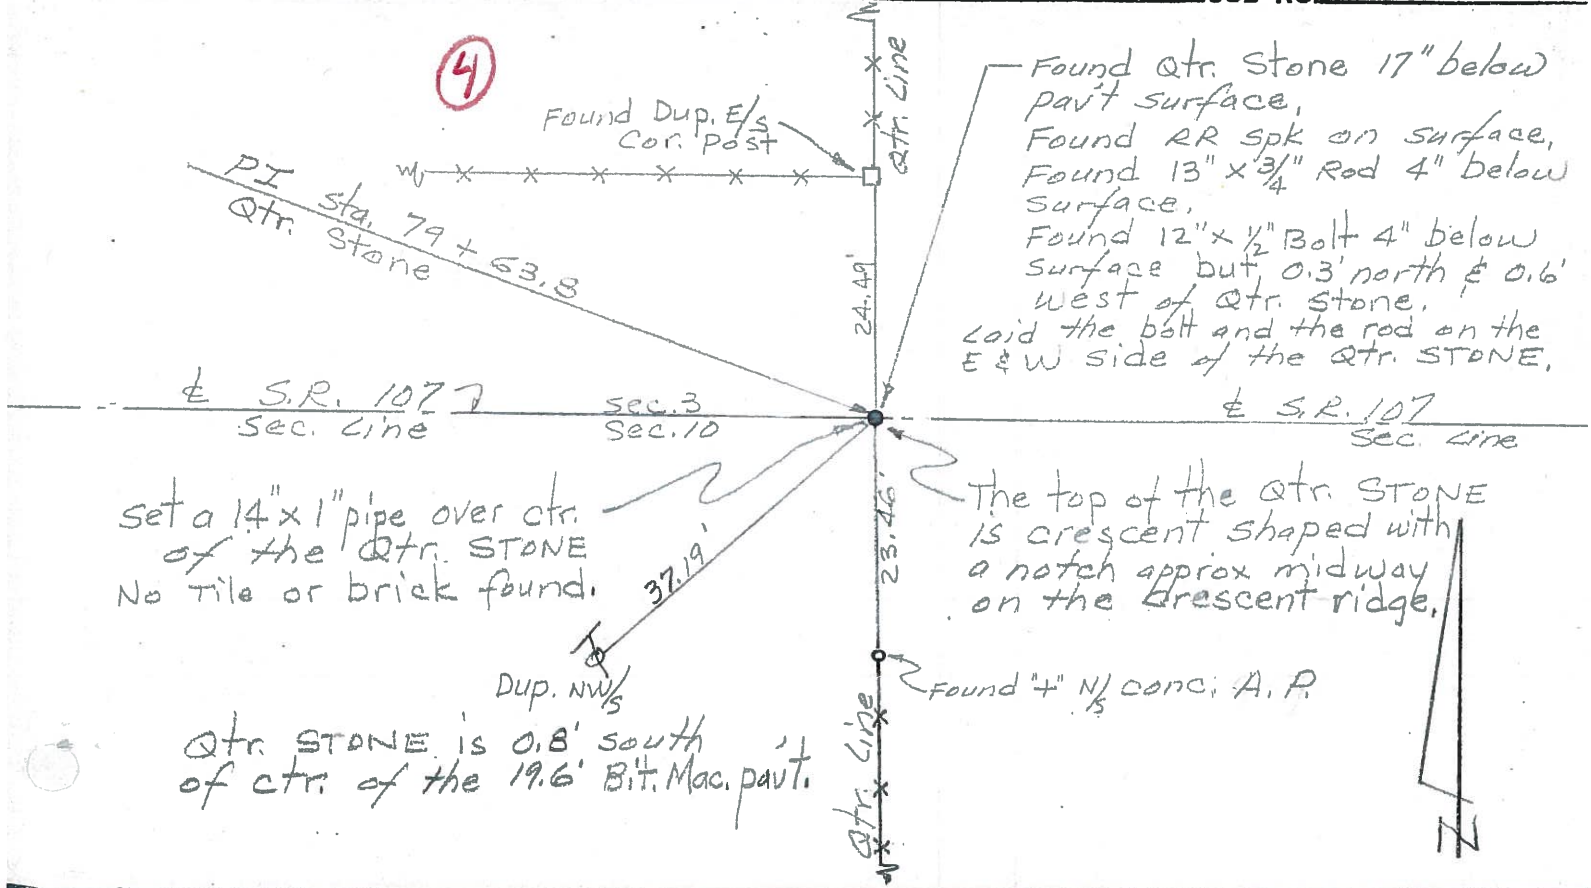 4
Found Dup. E/s
Cor. Post
Qtr. Line
Found Qtr. Stone 17" below
pav't surface,
Found RR spk on surface,
Found 13" x 3/4" Rod 4" below
surface,
Found 12" x 1/2" Bolt 4" below
surface but, 0.3' north & 0.6'
west of Qtr. Stone.
Laid the bolt and the rod on the
E & W side of the Qtr. STONE.
PI Sta. 79 + 63.8
Qtr. Stone
24.49'
℄ S.R. 107
Sec. Line
Sec. 3
Sec. 10
℄ S.R. 107
Sec. Line
Set a 14" x 1" pipe over ctr.
of the Qtr. STONE
No Tile or brick found.
37.19'
23.46'
The top of the Qtr. STONE
is crescent shaped with
a notch approx midway
on the crescent ridge.
Dup. NW/s
Found "+" N/s conc. A.P.
Qtr. STONE is 0.8' south
of ctr. of the 19.6' Bit. Mac. pav't.
Qtr. Line
N